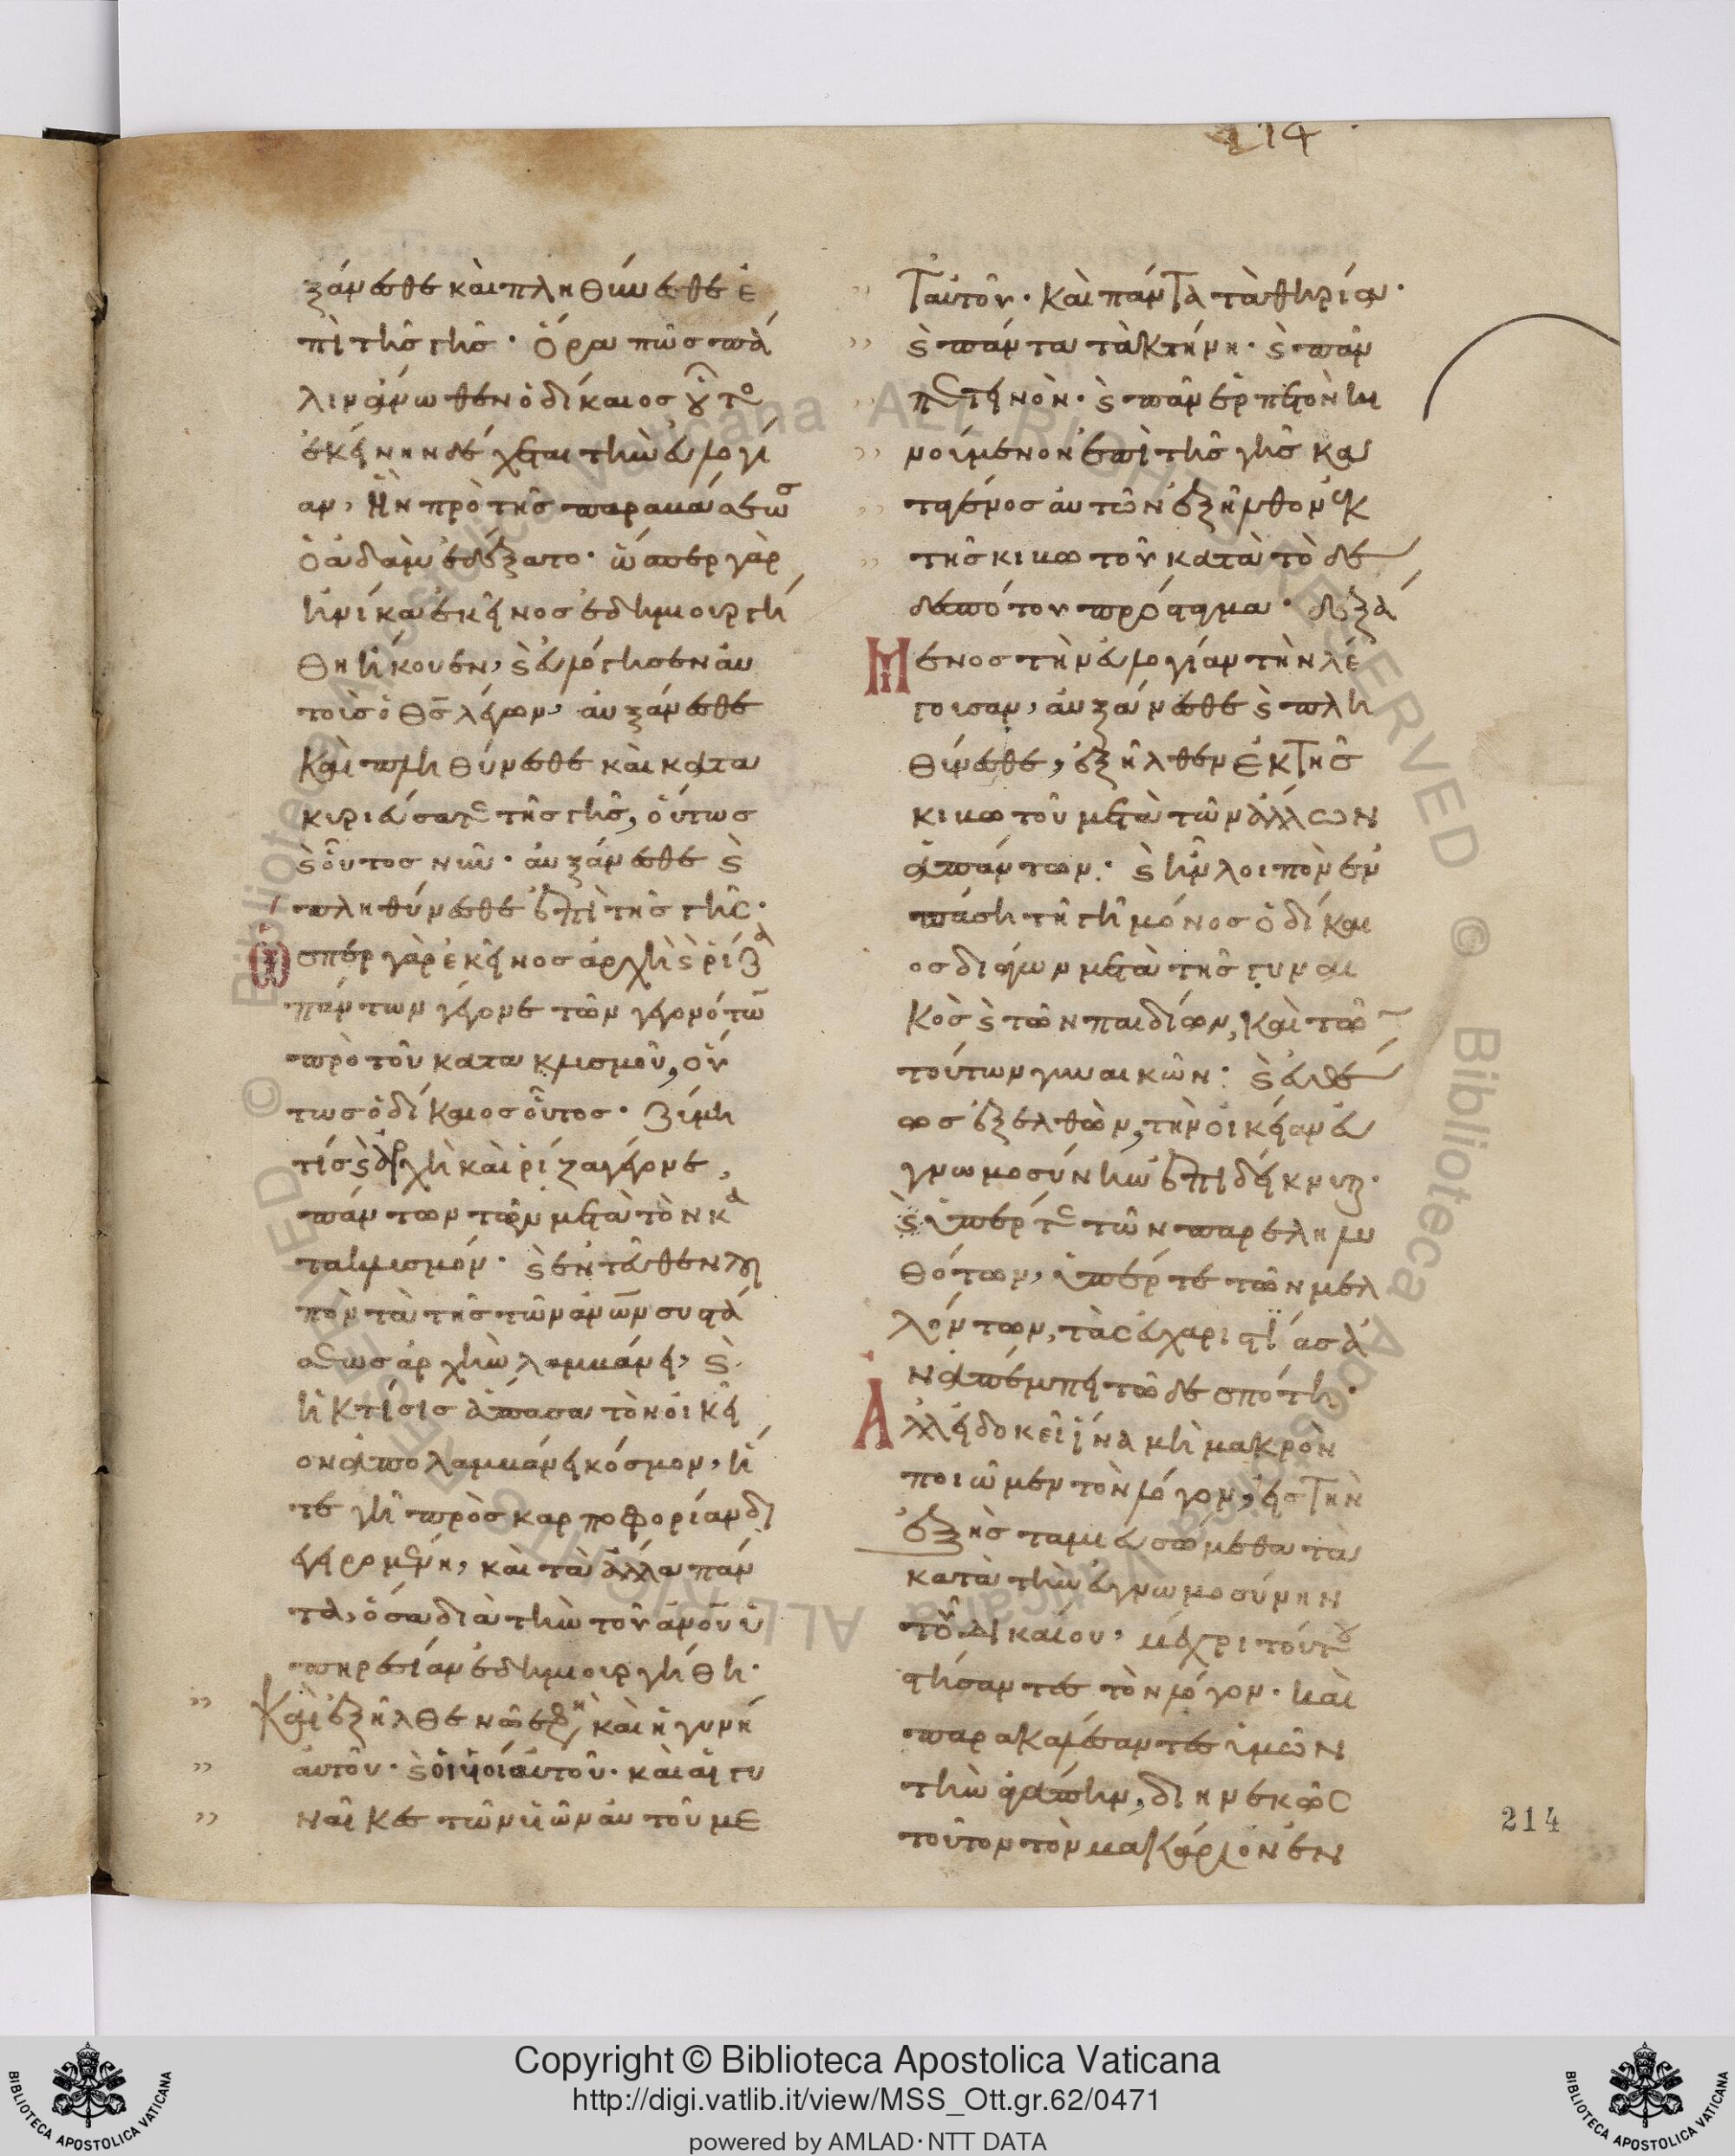 114
ξάνεσθε καὶ πληθύνεσθε ἐ
πὶ τῆς γῆς· ὅρα πῶς πά
λιν ἄνωθεν ὁ δίκαιος οὗτο
ἐκείνην δέχεται τὴν εὐλογί
αν, ἣν πρὸ τῆς παραβάσεως
ὁ ἀδὰμ ἐδέξατο· ὥσπερ γὰρ
ἡνίκα ἐκεῖνος ἐδημιουργή
θη ἤκουεν, ϗ εὐλόγησεν αὐ
τοὺς ὁ θς λέγων, αὐξάνεσθε
καὶ πληθύνεσθε καὶ κατα
κυριεύσατε τῆς γῆς, οὕτως
ϗ οὗτος νῦν· αὐξάνεσθε ϗ
πληθύνεσθε ἐπὶ τῆς γῆς·
ὥσπερ γὰρ ἐκεῖνος ἀρχὴ ϗ ῥίζα
πάντων γέγονε τῶν γεγονότων
πρὸ τοῦ κατακλυσμοῦ, οὕ
τως ὁ δίκαιος οὗτος· ζύμη
τίς ϗ ἀρχὴ καὶ ῥίζα γέγονε,
πάντων τῶν μετὰ τὸν κα
τακλυσμόν· ϗ ἐντεῦθεν λοι
πὸν τὰ τῆς τῶν ἀνων συστά
σεως ἀρχὴν λαμβάνει, ϗ
ἡ κτίσις ἅπασα τὸν οἰκεῖ
ον ἀπολαμβάνει κόσμον, ἥ
τε γῆ πρὸς καρποφορίαν δι
εγειρομένη, καὶ τὰ ἄλλα πάν
τα, ὅσα διὰ τὴν τοῦ ἀνου ὑ
πηρεσίαν ἐδημιουργήθη·
Καὶ ἐξῆλθε νῶε δὴ, καὶ ἡ γυνὴ
αὐτοῦ· ϗ οἱ υἱοὶ αὐτοῦ· καὶ αἱ γυ
ναῖκες τῶν υἱῶν αὐτοῦ με
τ αὐτοῦ· καὶ πάντα τὰ θηρία·
ϗ πάντα τὰ κτήνη· ϗ πᾶν
πετεινὸν· ϗ πᾶν ἑρπετὸν κι
νούμενον ἐπὶ τῆς γῆς κα
τὰ γένος αὐτῶν ἐξῆλθον ἐκ
τῆς κιβωτοῦ κατὰ τὸ δε
δεσπότου πρόσταγμα· δεξά
μενος τὴν εὐλογίαν τὴν λέ
γουσαν, αὐξάνεσθε ϗ πλη
θύνεσθε, ἐξῆλθεν ἐκ τῆς
κιβωτοῦ μετὰ τῶν ἄλλων
ἁπάντων· ϗ ἦν λοιπὸν ἐν
πάσῃ τῇ γῇ μόνος ὁ δίκαι
ος διάγων μετὰ τῆς γυναι
κὸς ϗ τῶν παιδίων, καὶ τῶν
τούτων γυναικῶν· ϗ εὐθέ
ως ἐξελθὼν, τὴν οἰκείαν εὐ
γνωμοσύνην ἐπιδείκνυται·
ϗ ὑπέρ τε τῶν παρεληλυ
θότων, ὑπέρ τε τῶν μελ
λόντων, τὰς εὐχαριστίας ἀ
ναπέμπει τῷ δεσπότῃ·
Ἀλλ εἰ δοκεῖ ἵνα μὴ μακρὸν
ποιῶμεν τὸν λόγον, εἰς τὴν
ἑξῆς ταμιευσώμεθα τὰ
κατὰ τὴν εὐγνωμοσύνην
τοῦ δικαίου, μέχρι τούτου
στήσαντες τὸν λόγον· καὶ
παρακαλέσαντες ὑμῶν
τὴν ἀγάπην, διηνεκῶς
τοῦτον τὸν μακάριον ἐν
214
Copyright © Biblioteca Apostolica Vaticana
http://digi.vatlib.it/view/MSS_Ott.gr.62/0471
powered by AMLAD·NTT DATA
BIBLIOTECA APOSTOLICA VATICANA
BIBLIOTECA APOSTOLICA VATICANA
© Biblioteca Apostolica Vaticana ALL RIGHTS RESERVED © Biblioteca Apostolica Vaticana ALL RIGHTS RESERVED